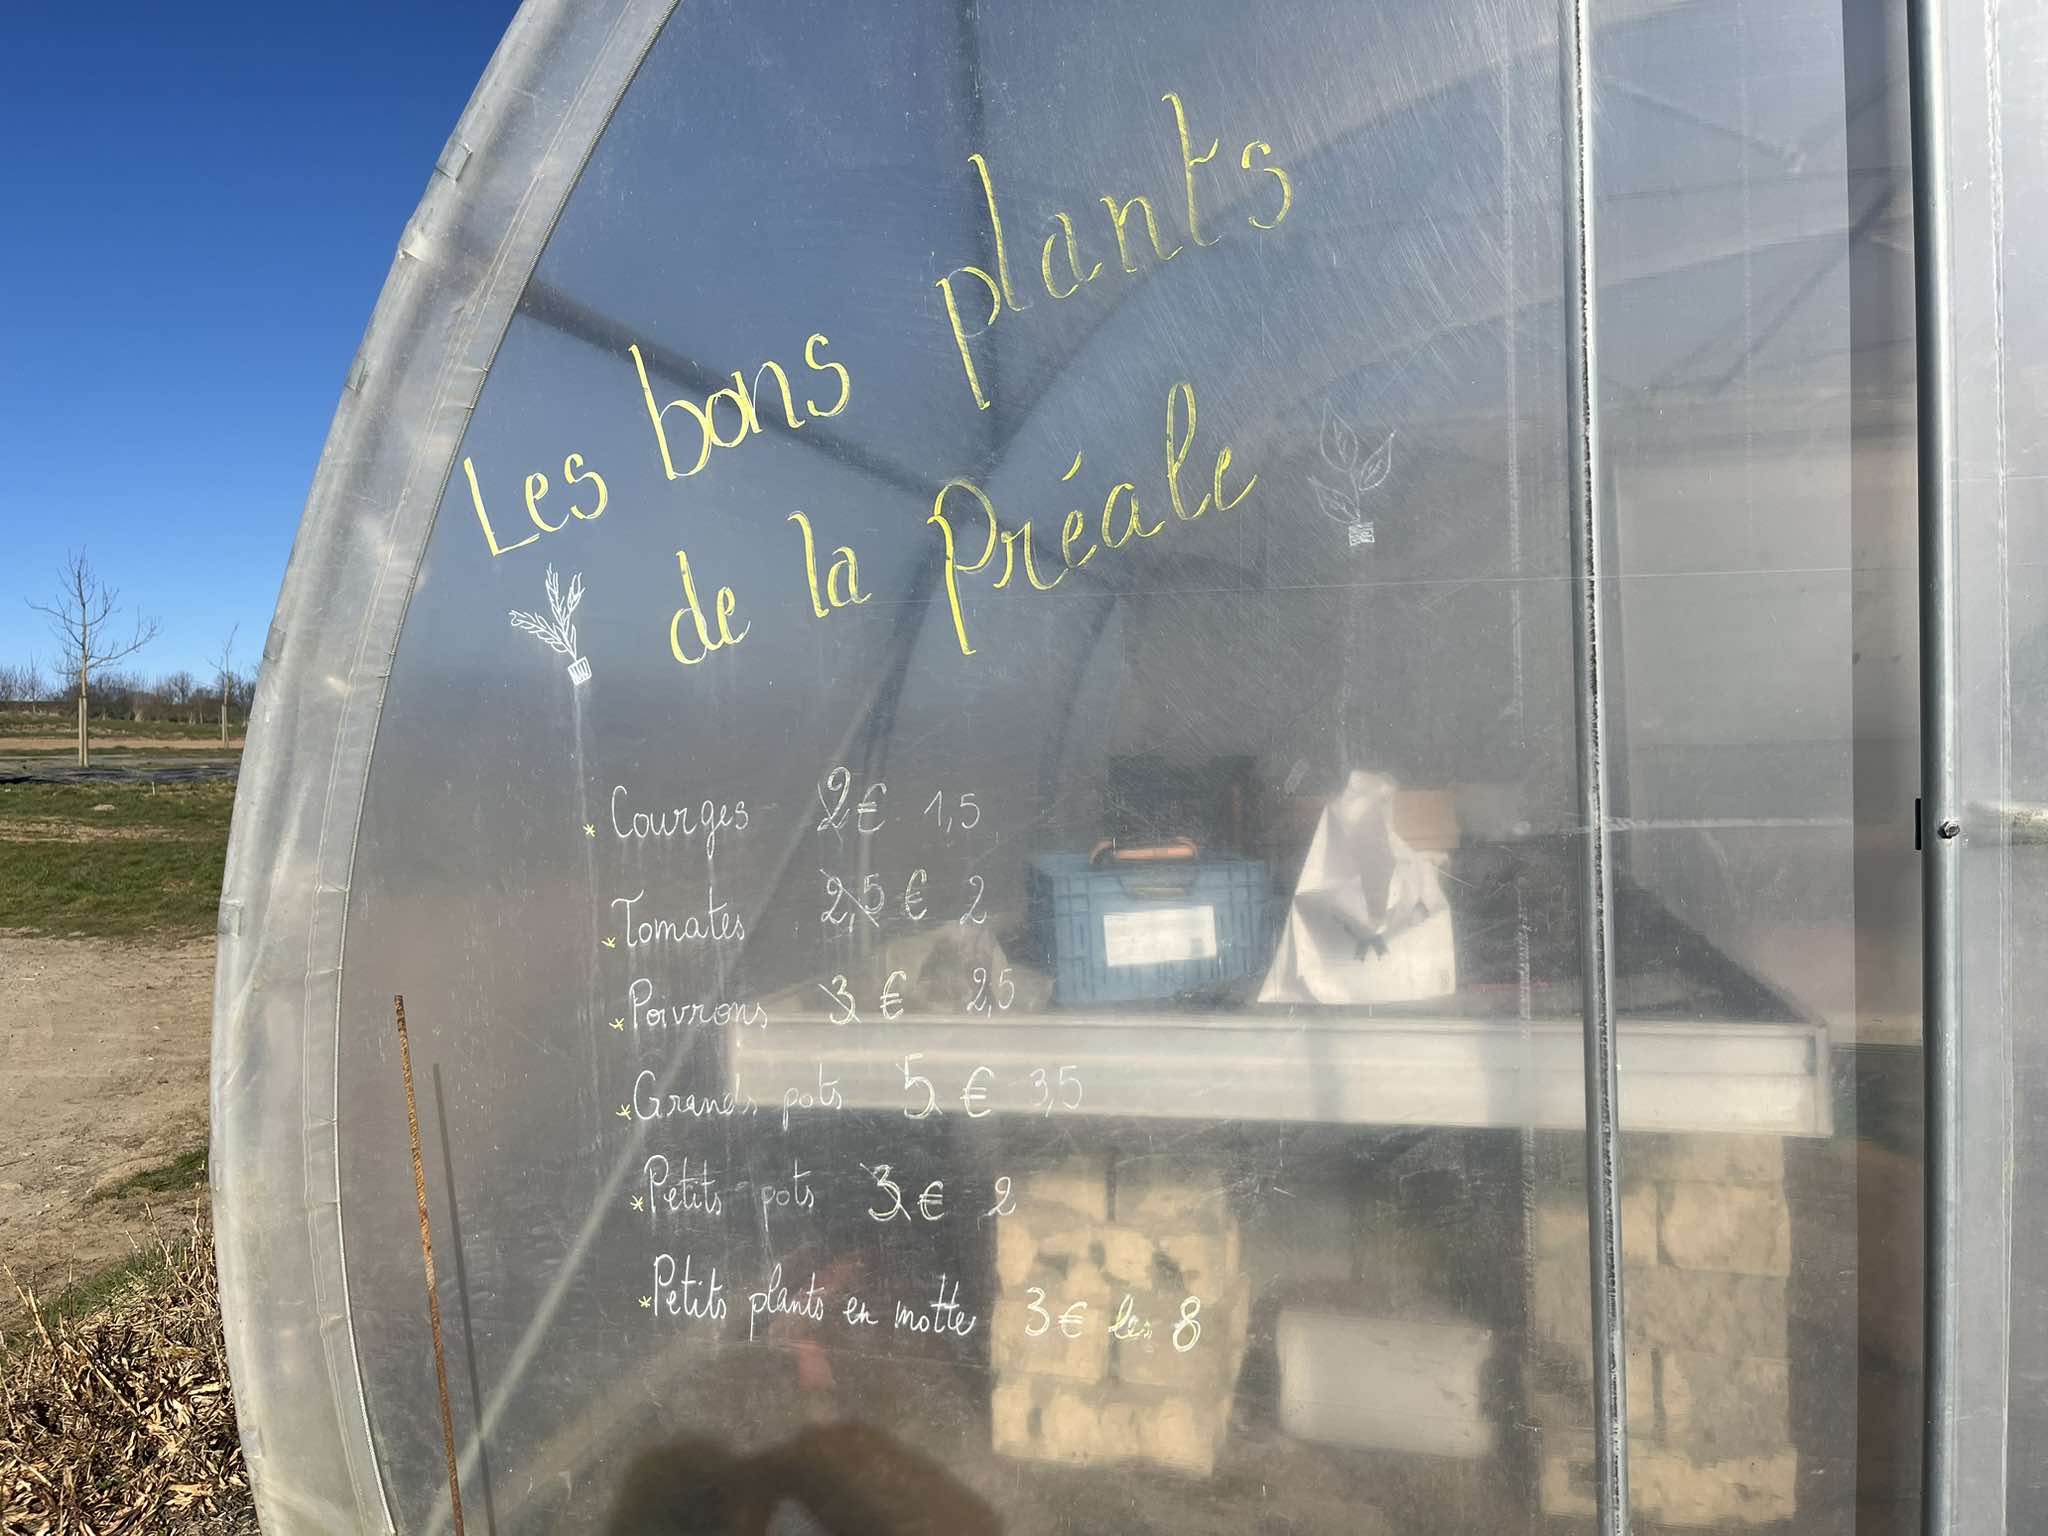 Les bons plants
de la Préale
* Courges 2€ 1,5
* Tomates 2,5€ 2
* Poivrons 3€ 2,5
* Grands pots 5€ 3,5
* Petits pots 3€ 2
* Petits plants en motte 3€ les 8